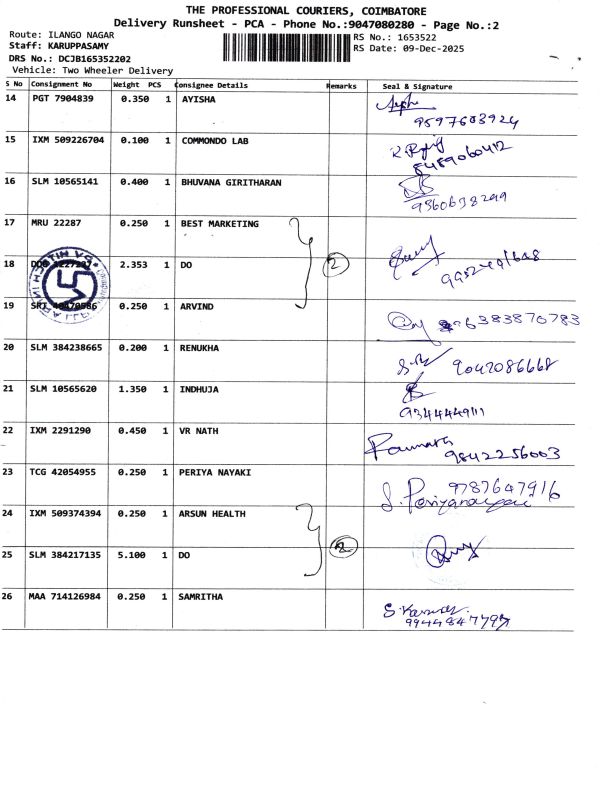 THE PROFESSIONAL COURIERS, COIMBATORE
Delivery Runsheet - PCA - Phone No.:9047080280 - Page No.:2
Route: ILANGO NAGAR
RS No.: 1653522
Staff: KARUPPASAMY
RS Date: 09-Dec-2025
DRS No.: DCJB165352202
Vehicle: Two Wheeler Delivery
S No Consignment No Weight PCS Consignee Details Remarks Seal & Signature
14 PGT 7904839 0.350 1 AYISHA
9597603924
15 IXM 509226704 0.100 1 COMMONDO LAB
8489060412
16 SLM 10565141 0.400 1 BHUVANA GIRITHARAN
9360638299
17 MRU 22287 0.250 1 BEST MARKETING
18 2.353 1 DO 2
19 0.250 1 ARVIND
6383870783
20 SLM 384238665 0.200 1 RENUKHA
9042086668
21 SLM 10565620 1.350 1 INDHUJA
9344449111
22 IXM 2291290 0.450 1 VR NATH
9842256003
23 TCG 42054955 0.250 1 PERIYA NAYAKI
9787647916
24 IXM 509374394 0.250 1 ARSUN HEALTH
25 SLM 384217135 5.100 1 DO
26 MAA 714126984 0.250 1 SAMRITHA